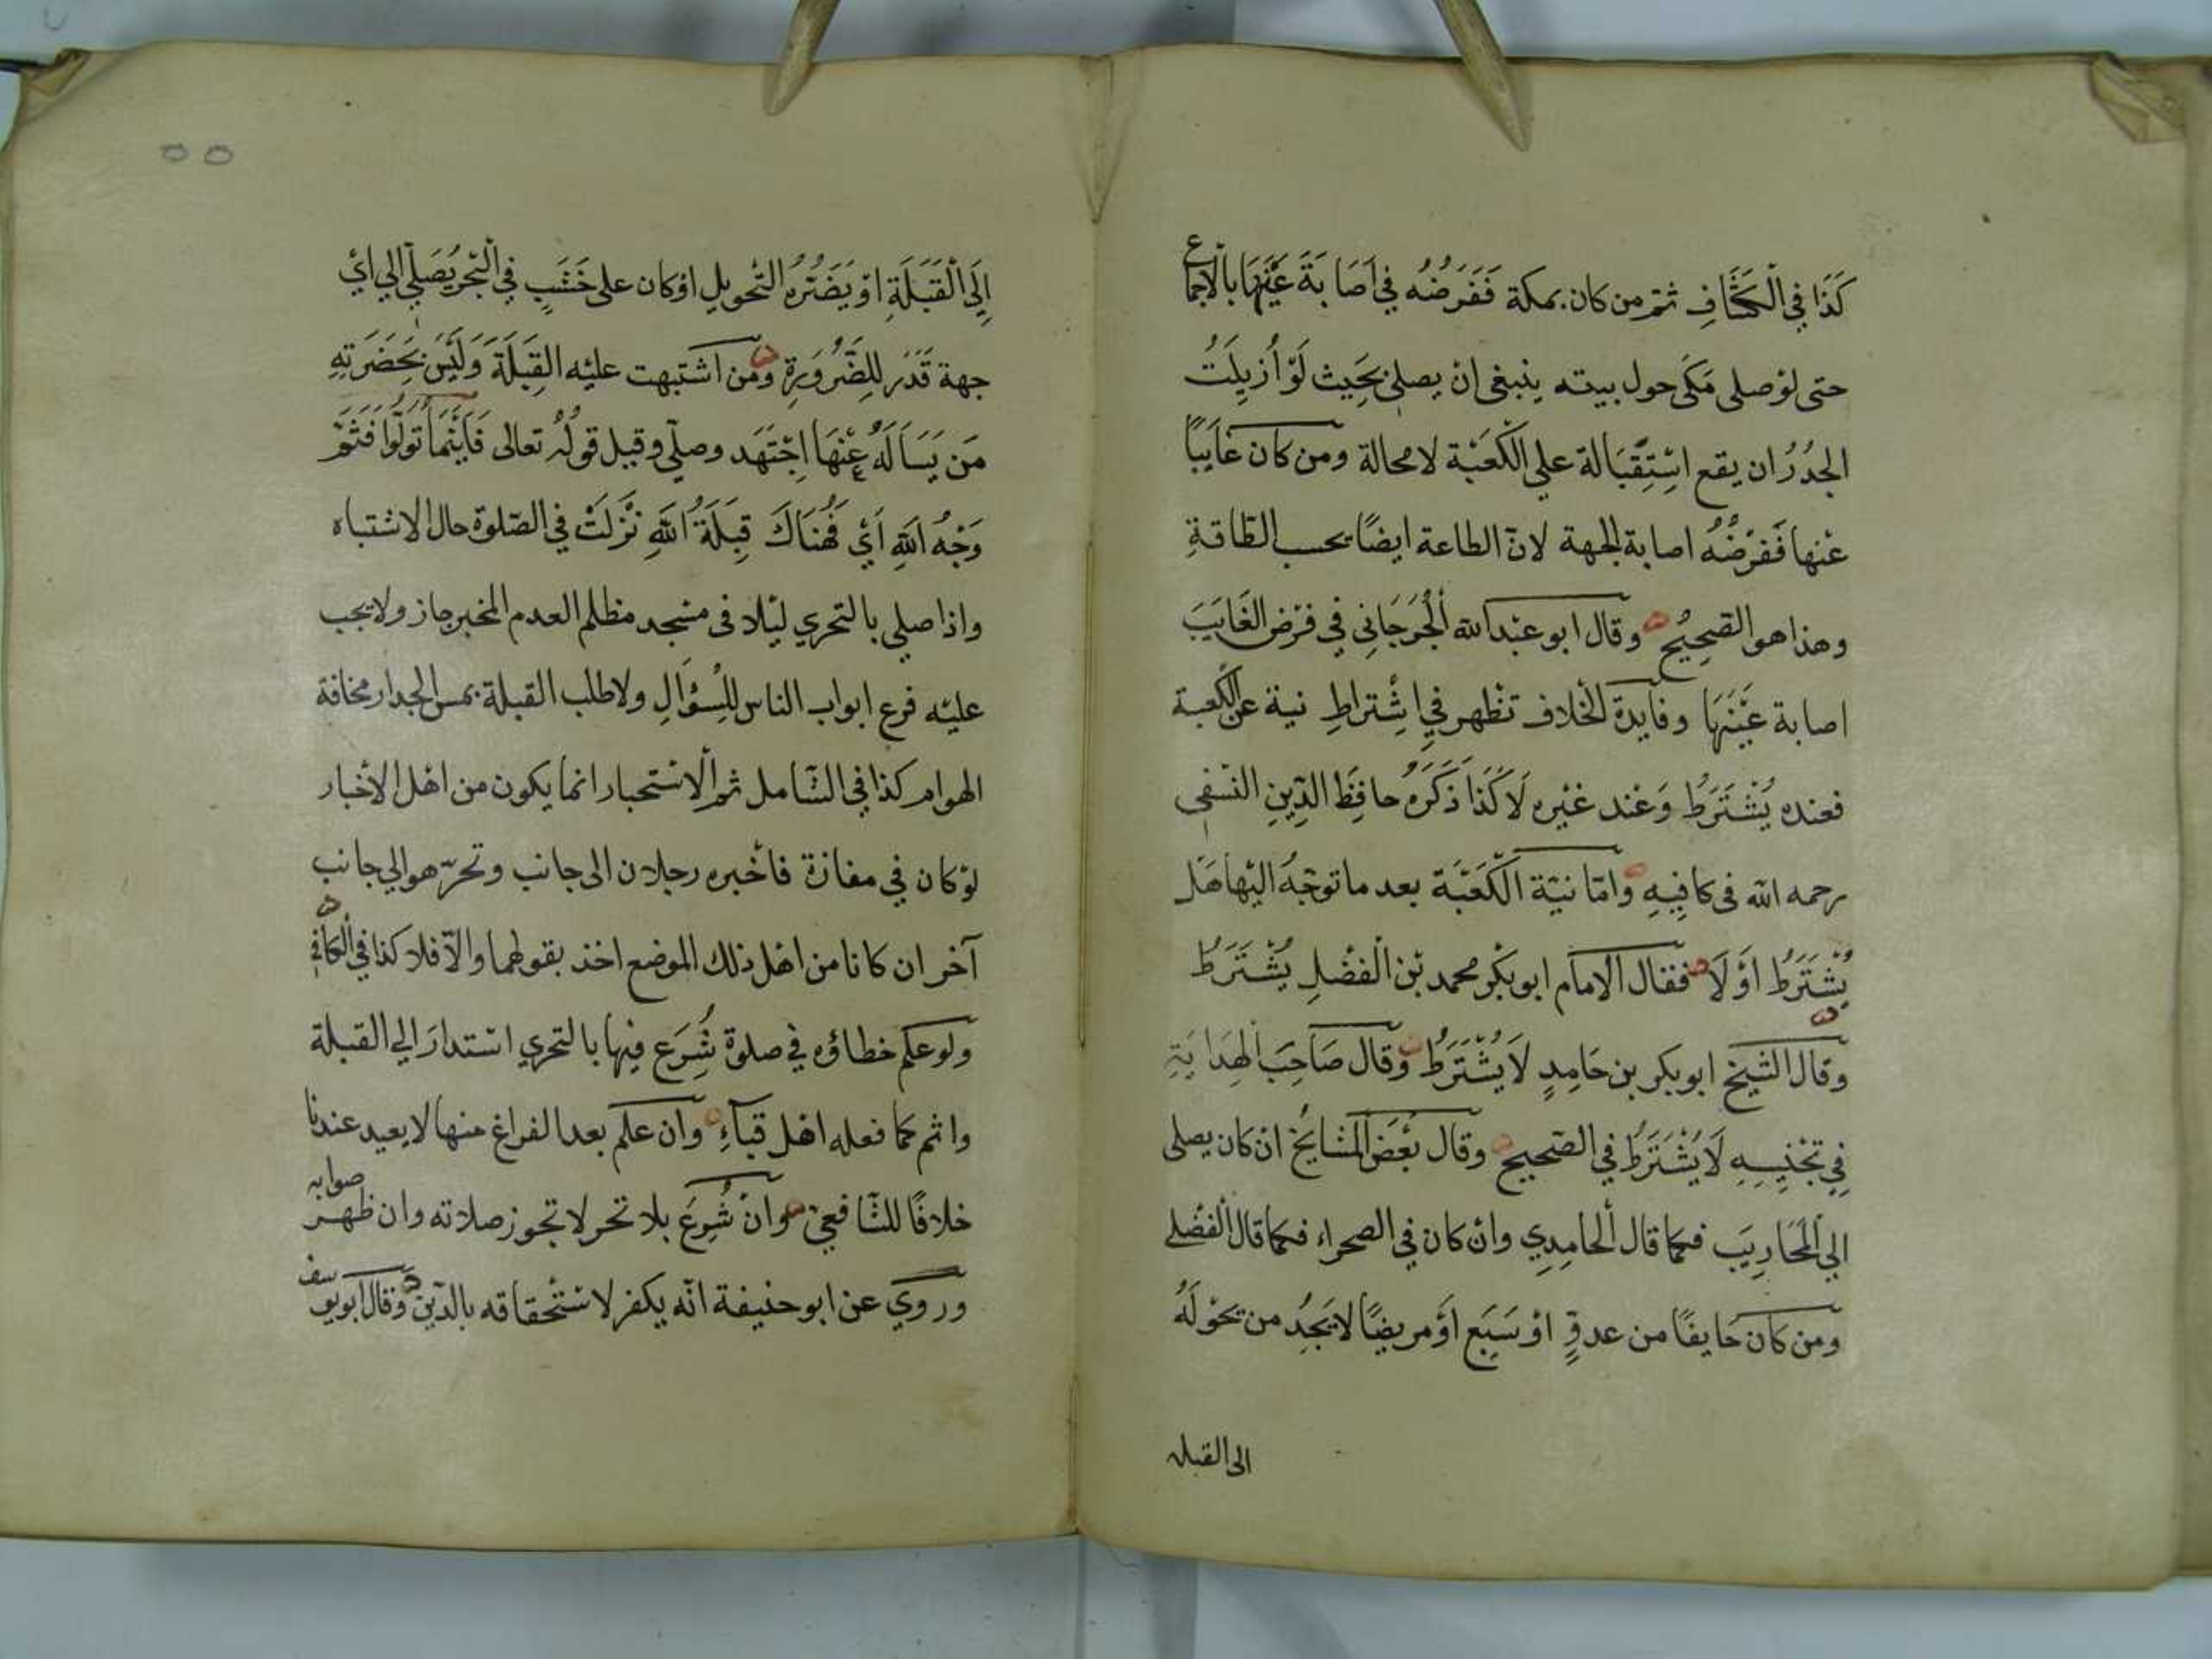 كَذَا في الْكَشَّافِ ثم من كان بمكة فَفَرَضُهُ في اَصَابَةَ عَيْنِهَا بالاجماع
حتى لوْ صلى مَكى حول بيته ينبغي انْ يصلي بحَيث لَوْ أُزيلَتْ
الجُدُرُ ان يقع اسْتِقْبَالة علي الْكَعْبَة لا محالة ومن كان غايبًا
عنها فَفَرْضُهُ اصابة الجهة لانّ الطاعة ايضًا بحسب الطّاقةِ
وهذا هو الصّحِيْح وقال ابو عبْد الله الْجُرْجَانِي في فرْضِ الغَايَبَ
اصابة عَيْنَهَا وفايدة الْخلاف تظهر في اِشْتراطِ نية عن الْكعبة
فعنده يُشْتَرَطُ وَعند غيْره لَا كَذَا ذَكَرَهُ حافظ الدِّينِ النّسْفِي
رحمه الله في كافِيهِ وامّا نيّة الْكَعْبَة بعد ما توجّهُ اليْها هَل
يُشْتَرَطُ اَوْ لَا فقال الامام ابو بكْر محمد بْن الْفضْلِ يُشْتَرَطُ
وقال الشيخ ابو بكر بن حَامِدٍ لَا يُشْتَرَطُ وقال صَاحِبَ الْهِدَايَةِ
فِي تجْنِيسِهِ لَا يَشْتَرَطُ في الصّحيح وقال بعْض الْمشَايخْ انْ كان يصلي
الي الْمَحَارِيبَ فكما قال الْحامِدِي وانْ كان في الصحراء فكما قال الْفضْلي
ومن كان خَايفًا من عدوٍّ اوْ سَبَع اَوْ مريضًا لا يَجِدُ من يحَوْلَهُ
الى القبله
٥٥
إِلَى الْقَبْلَةِ اوْ يَضُرُّهُ التّحْوِيل اوْ كان على خَشَبٍ في الْبَحْرِ يُصَلّي الي ايْ
جهة قَدَر لِلضّرُورَةِ ومن اشتبهت عليْه القِبَلَةَ وَلَيْسَ بِحَضْرَتِهِ
مَن يَسَالَهُ عَنْهَا اِجْتَهَد وصلّي وقيل قولُهُ تعالى فَايْنَمَا تُوَلّوا فَثَمّ
وَجْهُ اللهِ اَيْ فَهُنَاكَ قِبَلَةُ اللهِ نَزَلَتْ في الصّلوة حال الاشتباه
واذا صلي بالتحري ليْلا في مسْجد مظلم العدم المخبر جاز ولا يجب
عليْه قرع ابواب الناس للسُؤَالِ ولا طلب القبلة بمس الجدار مخافة
الهوام كذا في الشّامل ثم الْاستحبار انما يكون من اهْل الاخْبار
لوْ كان في مفازة فاخْبره رجلان الى جانب وتحرّ هو الي جانب
آخر ان كانا من اهْل ذلك الموضع اخذ بقولهما والاّ فلا كذا في الْكافي
ولو علم خطاؤه في صلوة شُرَع فيها بالتحري استدارَ الي القبلة
واتم كما فعله اهْل قبآءِ وان علم بعد الفراغ منها لا يعيد عندنا
خلافًا للشّافعيّ وانْ شُرِعَ بلا تحر لا تجوز صلاته وان ظهر صوابه
وروي عن ابو حنيفة انّه يكفر لاستْحقاقه بالدّين وقال ابو يوسف